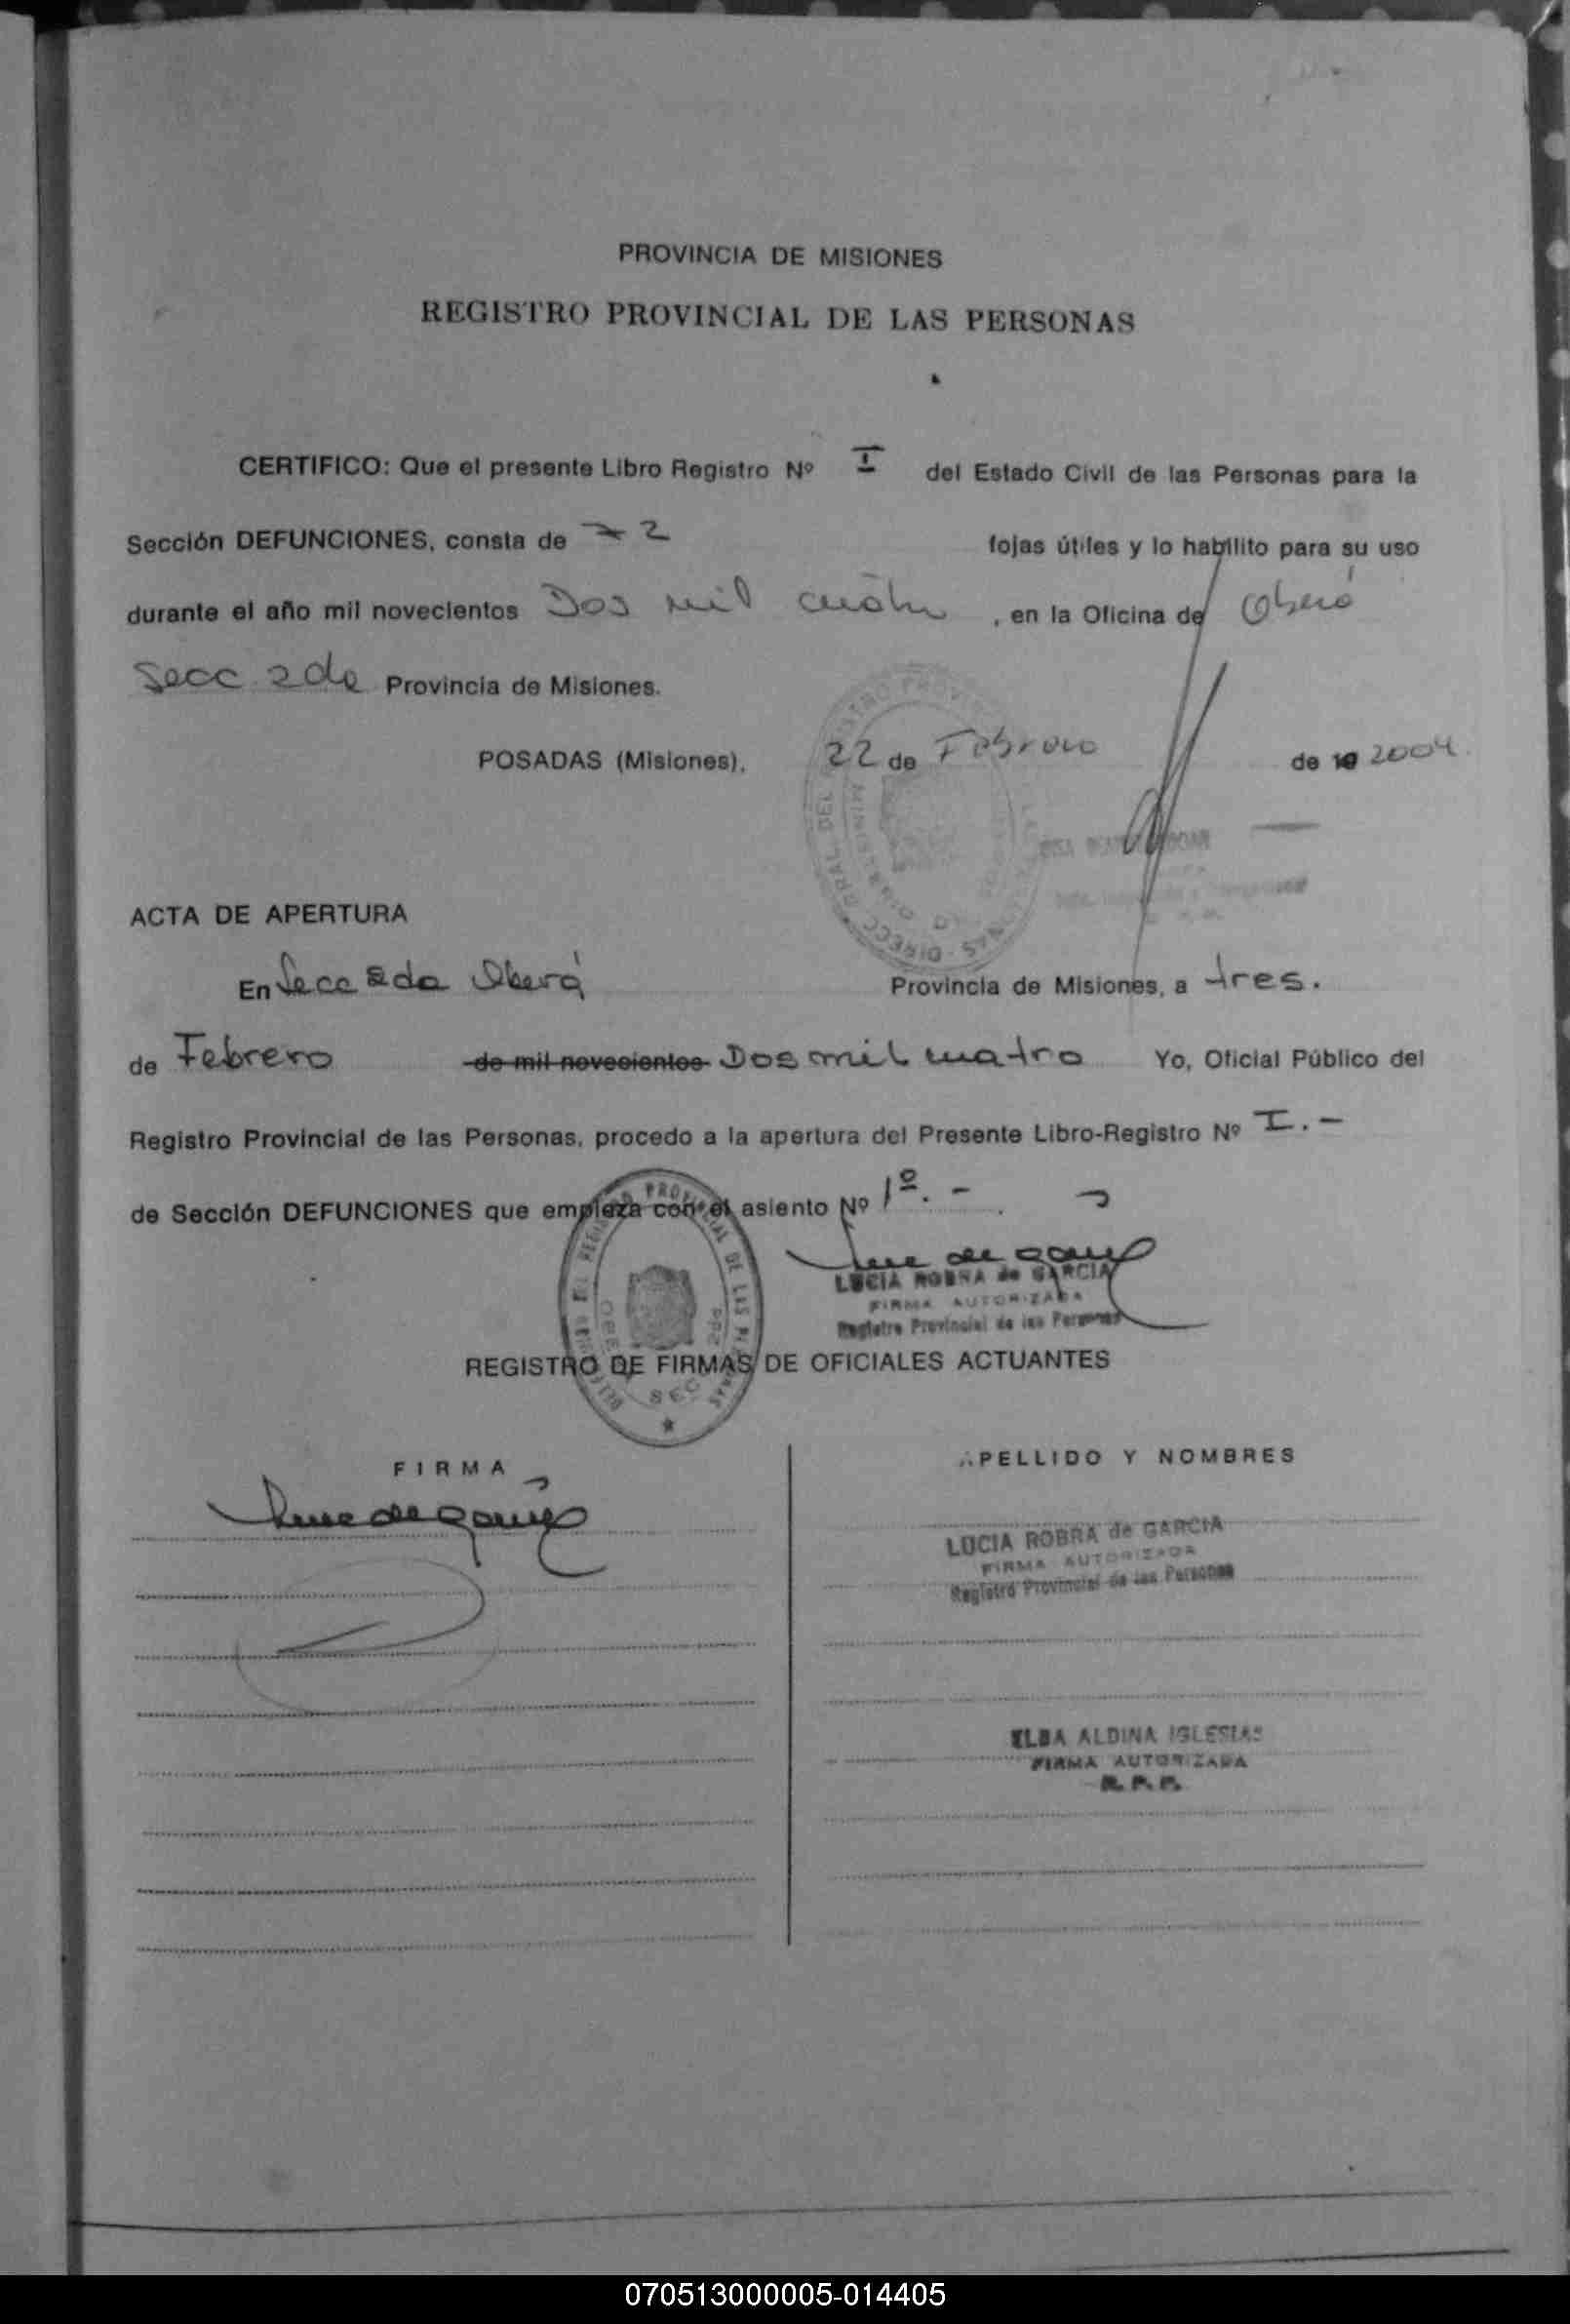 PROVINCIA DE MISIONES
REGISTRO PROVINCIAL DE LAS PERSONAS
CERTIFICO: Que el presente Libro Registro Nº I del Estado Civil de las Personas para la
Sección DEFUNCIONES, consta de 72 fojas útiles y lo habilito para su uso
durante el año mil novecientos Dos mil cuatro, en la Oficina de Oberá
Secc 2da Provincia de Misiones.
POSADAS (Misiones), 22 de Febrero de 19 2004.
ACTA DE APERTURA
En Secc 2da Oberá Provincia de Misiones, a tres.
de Febrero de mil novecientos Dos mil cuatro Yo, Oficial Público del
Registro Provincial de las Personas, procedo a la apertura del Presente Libro-Registro Nº I.-
de Sección DEFUNCIONES que empieza con el asiento Nº 1º.-
LUCIA ROBRA de GARCIA
FIRMA AUTORIZADA
Registro Provincial de las Personas
REGISTRO DE FIRMAS DE OFICIALES ACTUANTES
FIRMA
APELLIDO Y NOMBRES
LUCIA ROBRA de GARCIA
FIRMA AUTORIZADA
Registro Provincial de las Personas
ELBA ALDINA IGLESIAS
FIRMA AUTORIZADA
R. P. P.
070513000005-014405